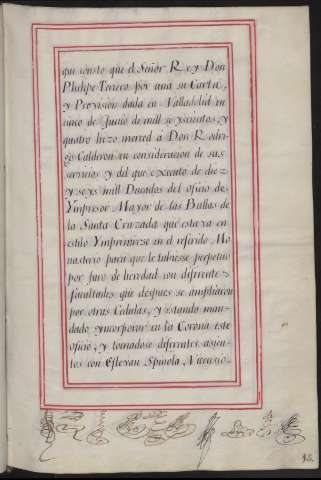 qui consto que el Señor Rey Don
Phelipe Terzero por una su Carta,
y Provision dada en Valladolid en
cinco de Junio de mill seyscientos y
quatro hizo merced a Don Rodri-
go Calderon en consideracion de sus
servicios y del que executo de diez
y seys mill Ducados del oficio de
Ympresor Mayor de las Bullas de
la Santa Cruzada que estava en
estilo Ymprimirse en el referido Mo
nasterio para que le tubiesse perpetuo
por Juro de heredad con diferentes
facultades que despues se ampliaron
por otras Cedulas, y estando man-
dado yncorporar en la Corona este
oficio, y tomadose diferentes asien-
tos con Estevan Spinola, Vicencio
15.